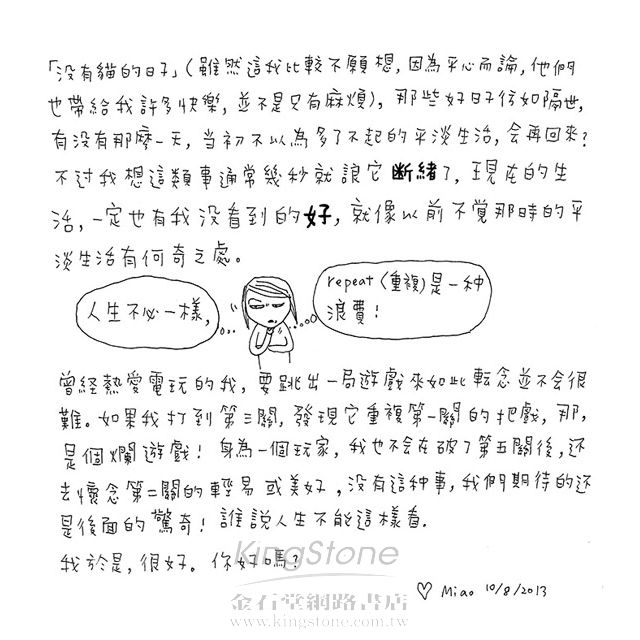 「没有貓的日子」(雖然這我比較不願想,因為平心而論,他們
也帶給我許多快樂,並不是只有麻煩),那些好日子彷如隔世,
有没有那麼一天,當初不以為多了不起的平淡生活,会再回來?
不过我想這類事通常幾秒就讓它断緒了,現在的生
活,一定也有我没看到的好,就像以前不覚那時的平
淡生活有何奇之處。
人生不必一樣,
repeat(重複)是一种
浪費!
曾経熱愛電玩的我,要跳出一局遊戲來如此転念並不会很
難。如果我打到第三關,發現它重複第一關的把戲,那,
是個爛遊戲!身為一個玩家,我也不会在破了第五關後,还
去懷念第二關的輕易或美好,没有這种事,我們期待的还
是後面的驚奇!誰說人生不能這樣看.
我於是,很好。你好嗎?
♡ Miao 10/8/2013
KingStone
金石堂網路書店
www.kingstone.com.tw